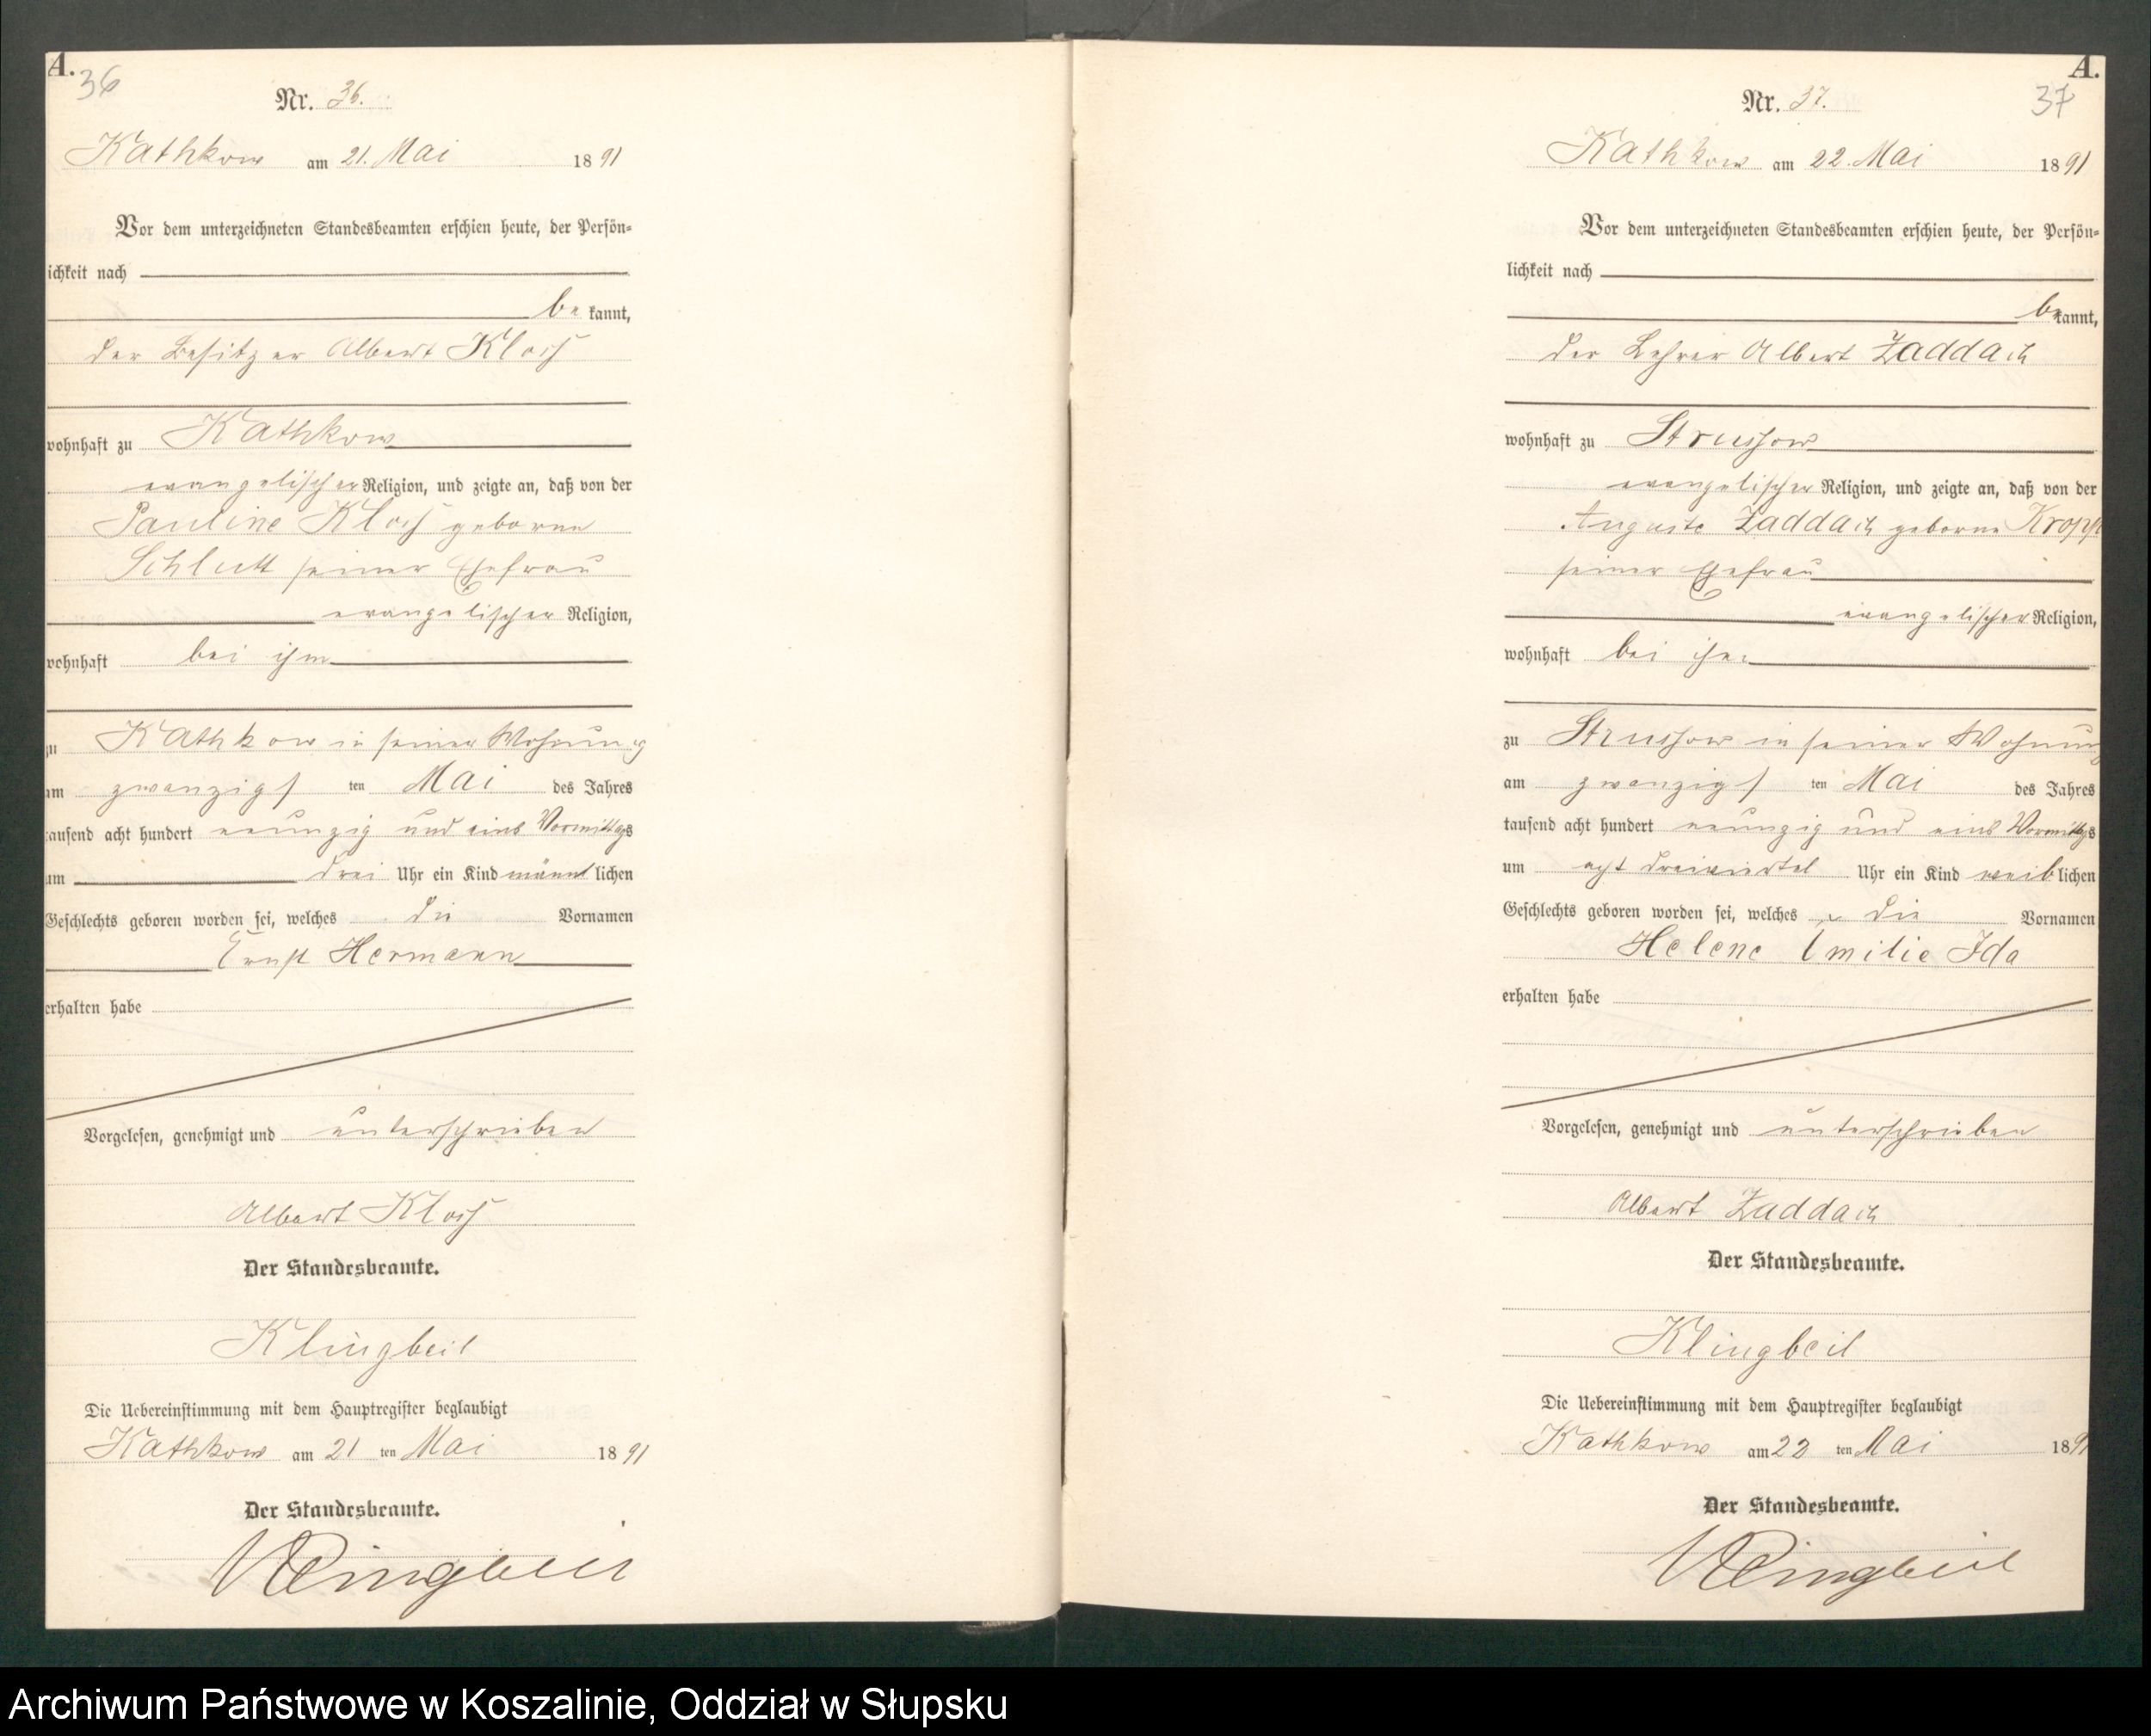 A.
36
Nr. 36.
Kathkow am 21. Mai 1891
Vor dem unterzeichneten Standesbeamten erschien heute, der Persön-
ichkeit nach
be kannt,
der Besitzer Albert Kloß
wohnhaft zu Kathkow
evangelischer Religion, und zeigte an, daß von der
Pauline Kloß geborne
Schlutt seiner Ehefrau
evangelischer Religion,
wohnhaft bei ihm
zu Kathkow in seiner Wohnung
am zwanzigs ten Mai des Jahres
tausend acht hundert neunzig und eins Vormittags
um drei Uhr ein Kind männlichen
Geschlechts geboren worden sei, welches die Vornamen
Ernst Hermann
erhalten habe
Vorgelesen, genehmigt und unterschrieben
Albert Kloß
Der Standesbeamte.
Klingbeil
Die Uebereinstimmung mit dem Hauptregister beglaubigt
Kathkow am 21 ten Mai 1891
Der Standesbeamte.
Klingbeil
A.
37
Nr. 37.
Kathkow am 22. Mai 1891
Vor dem unterzeichneten Standesbeamten erschien heute, der Persön-
lichkeit nach
bekannt,
der Lehrer Albert Zaddach
wohnhaft zu Strussow
evangelischer Religion, und zeigte an, daß von der
Auguste Zaddach geborne Kropp
seiner Ehefrau
evangelischer Religion,
wohnhaft bei ihm
zu Strussow in seiner Wohnung
am zwanzigs ten Mai des Jahres
tausend acht hundert neunzig und eins Vormittags
um acht dreiviertel Uhr ein Kind weiblichen
Geschlechts geboren worden sei, welches die Vornamen
Helene Emilie Ida
erhalten habe
Vorgelesen, genehmigt und unterschrieben
Albert Zaddach
Der Standesbeamte.
Klingbeil
Die Uebereinstimmung mit dem Hauptregister beglaubigt
Kathkow am 22 ten Mai 1891
Der Standesbeamte.
Klingbeil
Archiwum Państwowe w Koszalinie, Oddział w Słupsku